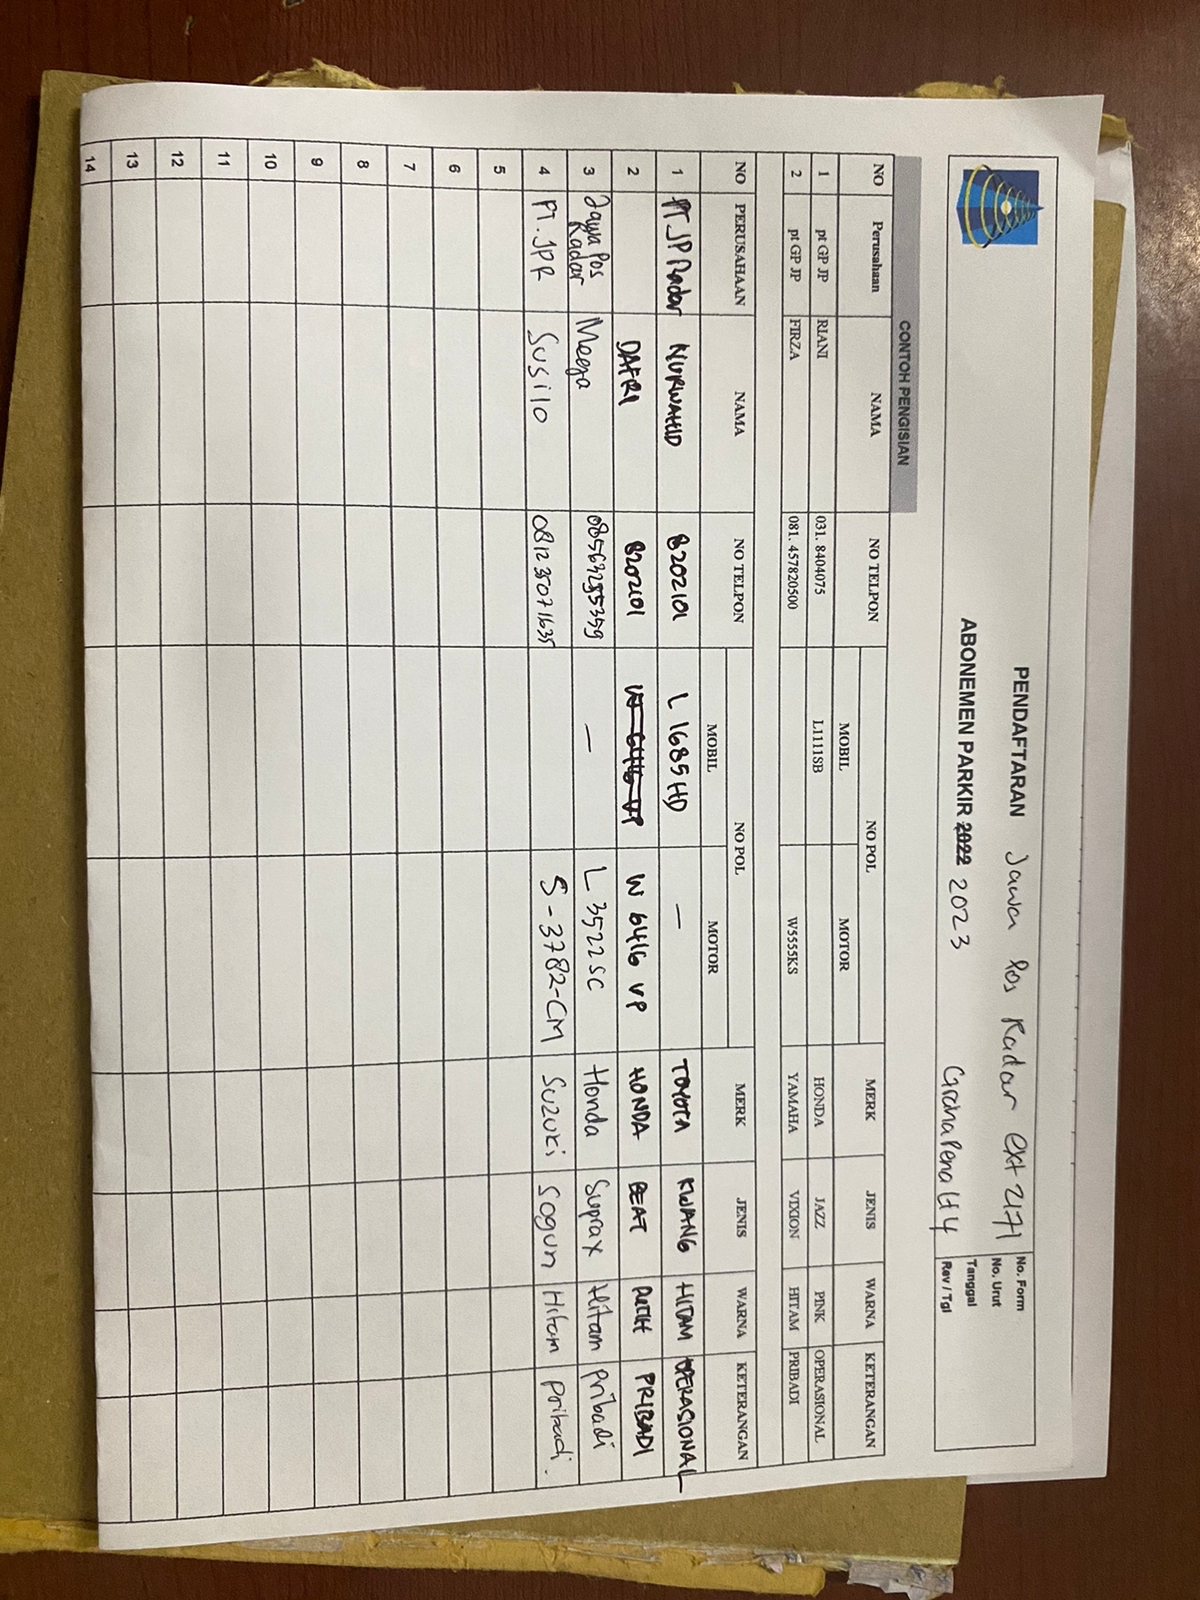 PENDAFTARAN Jawa Pos Radar ext 2171
ABONEMEN PARKIR 2022 2023 Graha Pena Lt 4
No. Form
No. Urut
Tanggal
Rev / Tgl
CONTOH PENGISIAN
NO Perusahaan NAMA NO TELPON NO POL MERK JENIS WARNA KETERANGAN
MOBIL MOTOR
1 pt GP JP RIANI 031. 8404075 L1111SB HONDA JAZZ PINK OPERASIONAL
2 pt GP JP FIRZA 081. 457820500 W5555KS YAMAHA VIXION HITAM PRIBADI
NO PERUSAHAAN NAMA NO TELPON NO POL MERK JENIS WARNA KETERANGAN
MOBIL MOTOR
1 PT JP Radar NURWAHID 8202101 L 1685 HD — TOYOTA KIJANG HITAM OPERASIONAL
2 DAFRI 8202101 W 6416 VP HONDA BEAT PUTIH PRIBADI
3 Jawa Pos Radar Meega — L 3522 SC Honda Suprax Hitam Pribadi
4 PT. JPR Susilo 081235071635 S-3782-CM Suzuki Sogun Hitam Pribadi.
5
6
7
8
9
10
11
12
13
14